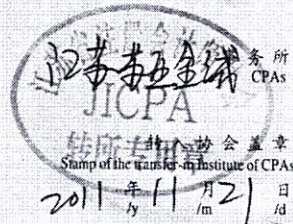 江苏苏亚金诚 务所
CPAs
JICPA
转所专用章
转入协会盖章
Stamp of the transfer-in Institute of CPAs
2011 年 11 月 21 日
/y /m /d